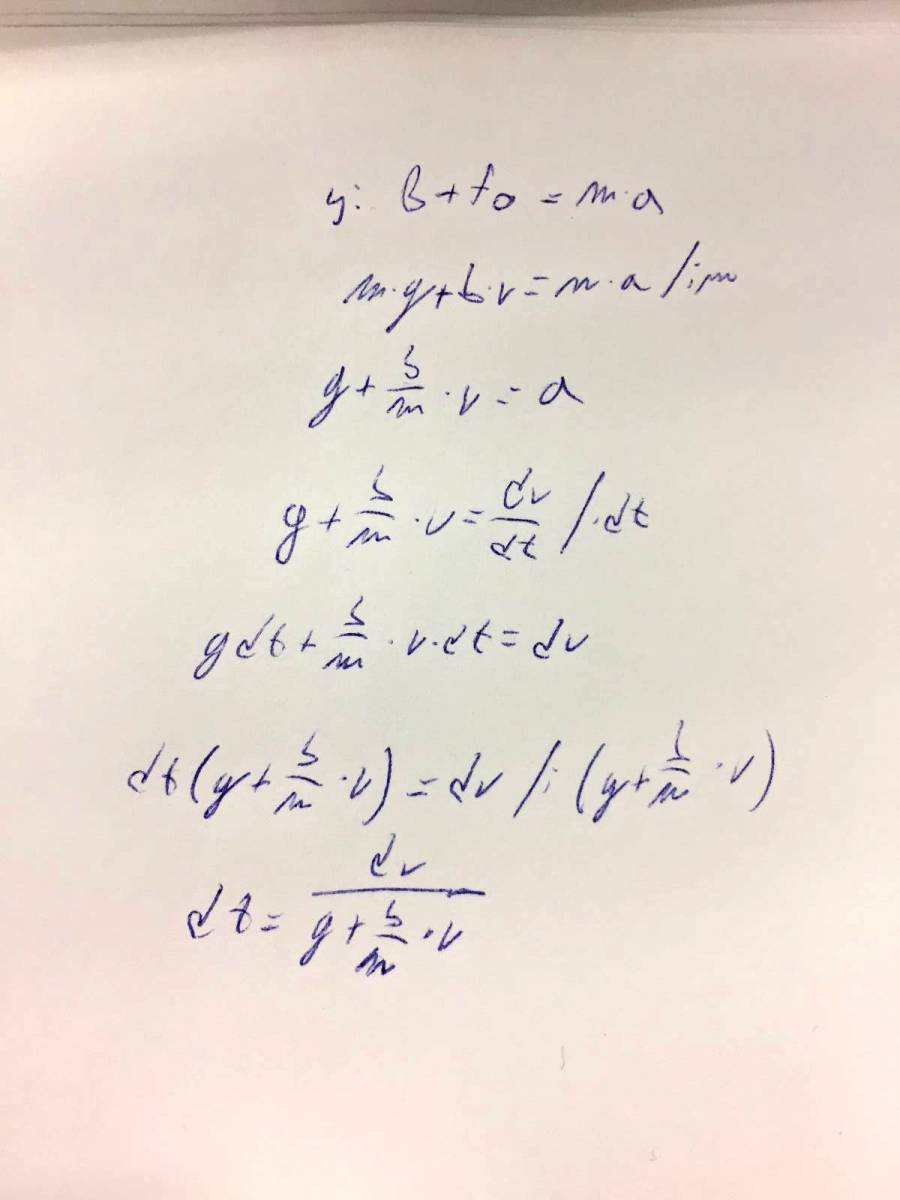 y: B + f₀ = m·a
m·g + b·v = m·a /:m
g + b/m · v = a
g + b/m · v = dv/dt /·dt
g dt + b/m · v·dt = dv
dt(g + b/m · v) = dv /: (g + b/m · v)
dt = dv/(g + b/m · v)